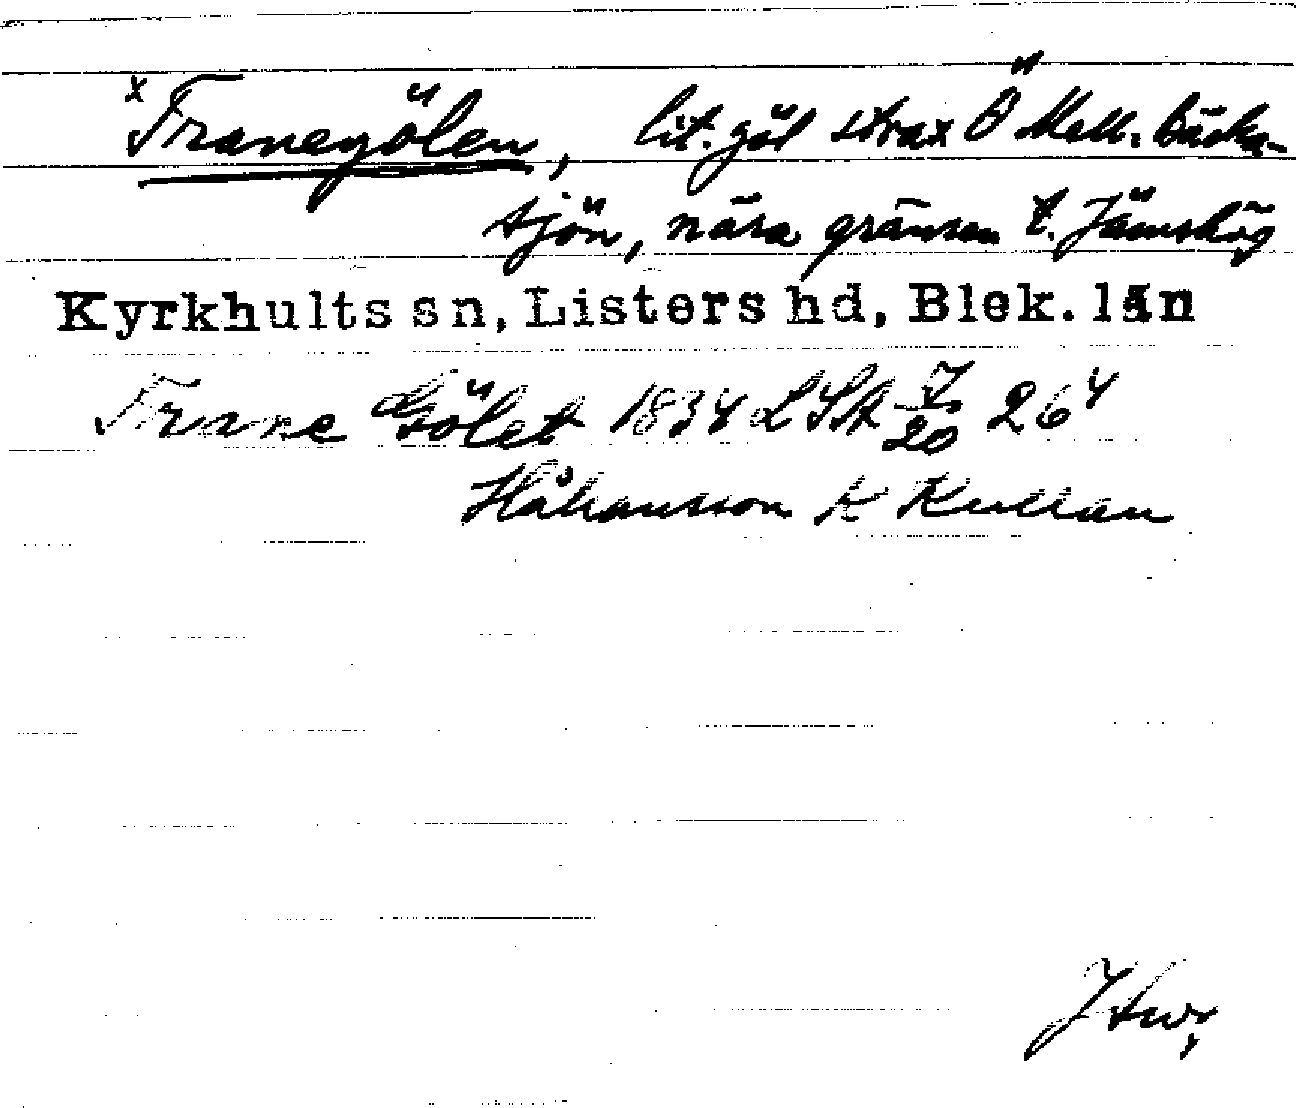 x Tranegölen, lit. göl strax Ö Mell. Bäcka-
sjön, nära gränsen t. Jämshög
Kyrkhults sn, Listers hd, Blek. län
Trane Gölet 1834 LSA 7/20 26⁴
Håkansson K Kullan